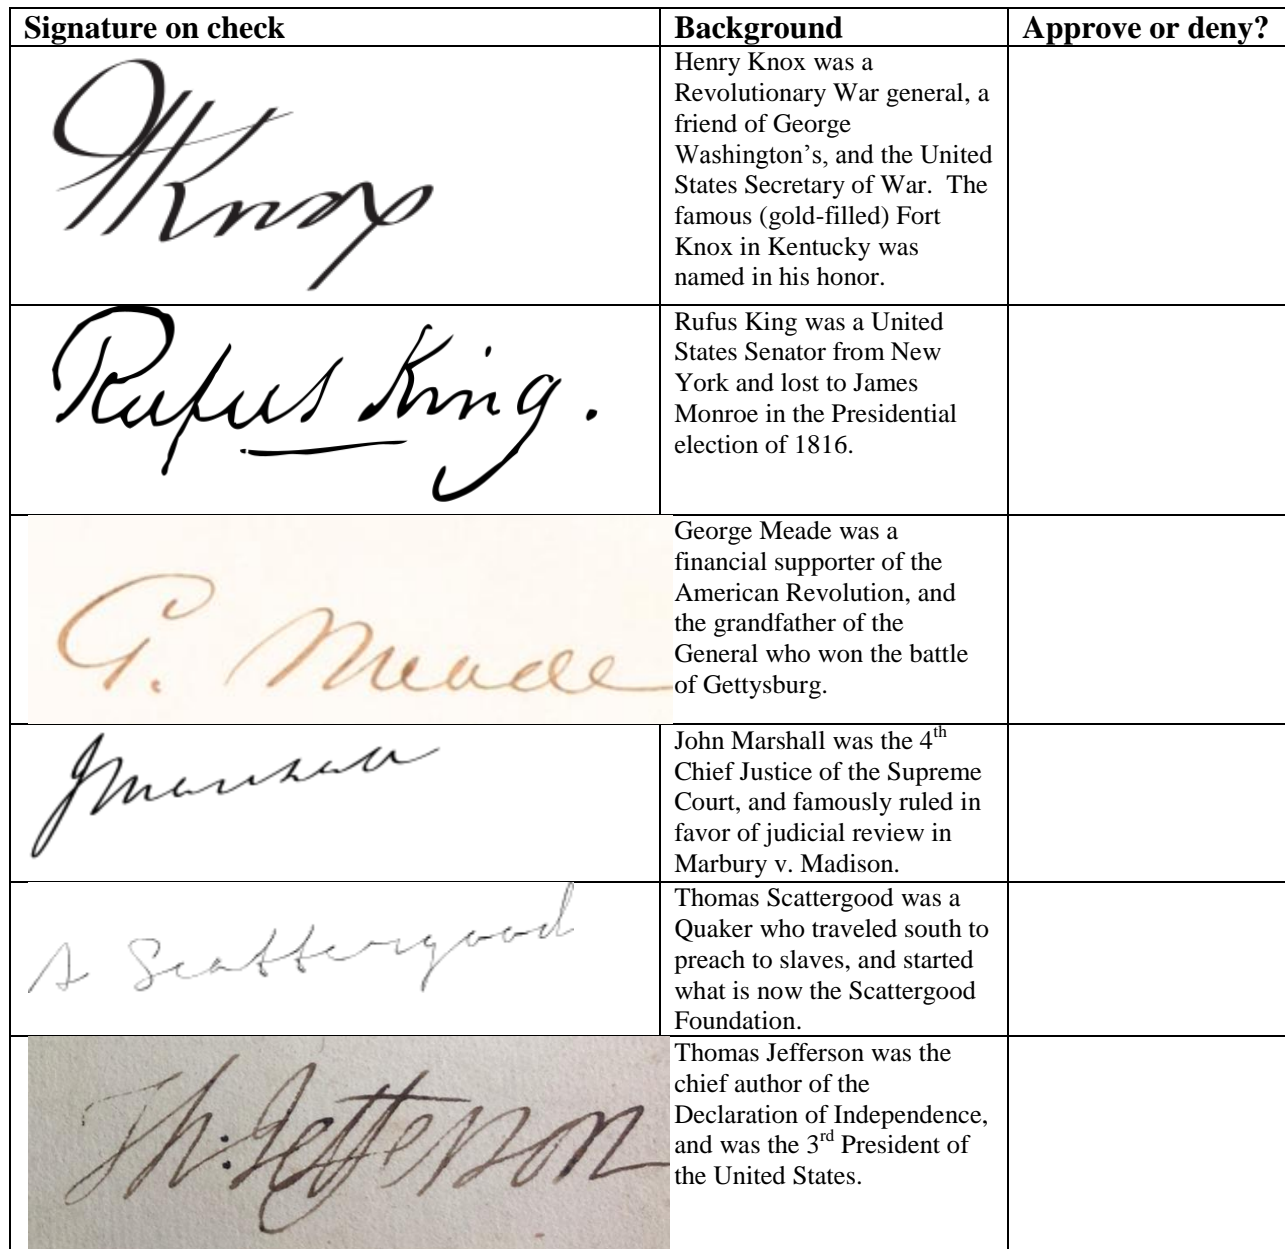 Signature on check Background Approve or deny?
HKnox
Henry Knox was a
Revolutionary War general, a
friend of George
Washington’s, and the United
States Secretary of War.  The
famous (gold-filled) Fort
Knox in Kentucky was
named in his honor.
Rufus King.
Rufus King was a United
States Senator from New
York and lost to James
Monroe in the Presidential
election of 1816.
G. Meade
George Meade was a
financial supporter of the
American Revolution, and
the grandfather of the
General who won the battle
of Gettysburg.
J Marshall
John Marshall was the 4th
Chief Justice of the Supreme
Court, and famously ruled in
favor of judicial review in
Marbury v. Madison.
Scattergood
Thomas Scattergood was a
Quaker who traveled south to
preach to slaves, and started
what is now the Scattergood
Foundation.
Th: Jefferson
Thomas Jefferson was the
chief author of the
Declaration of Independence,
and was the 3rd President of
the United States.